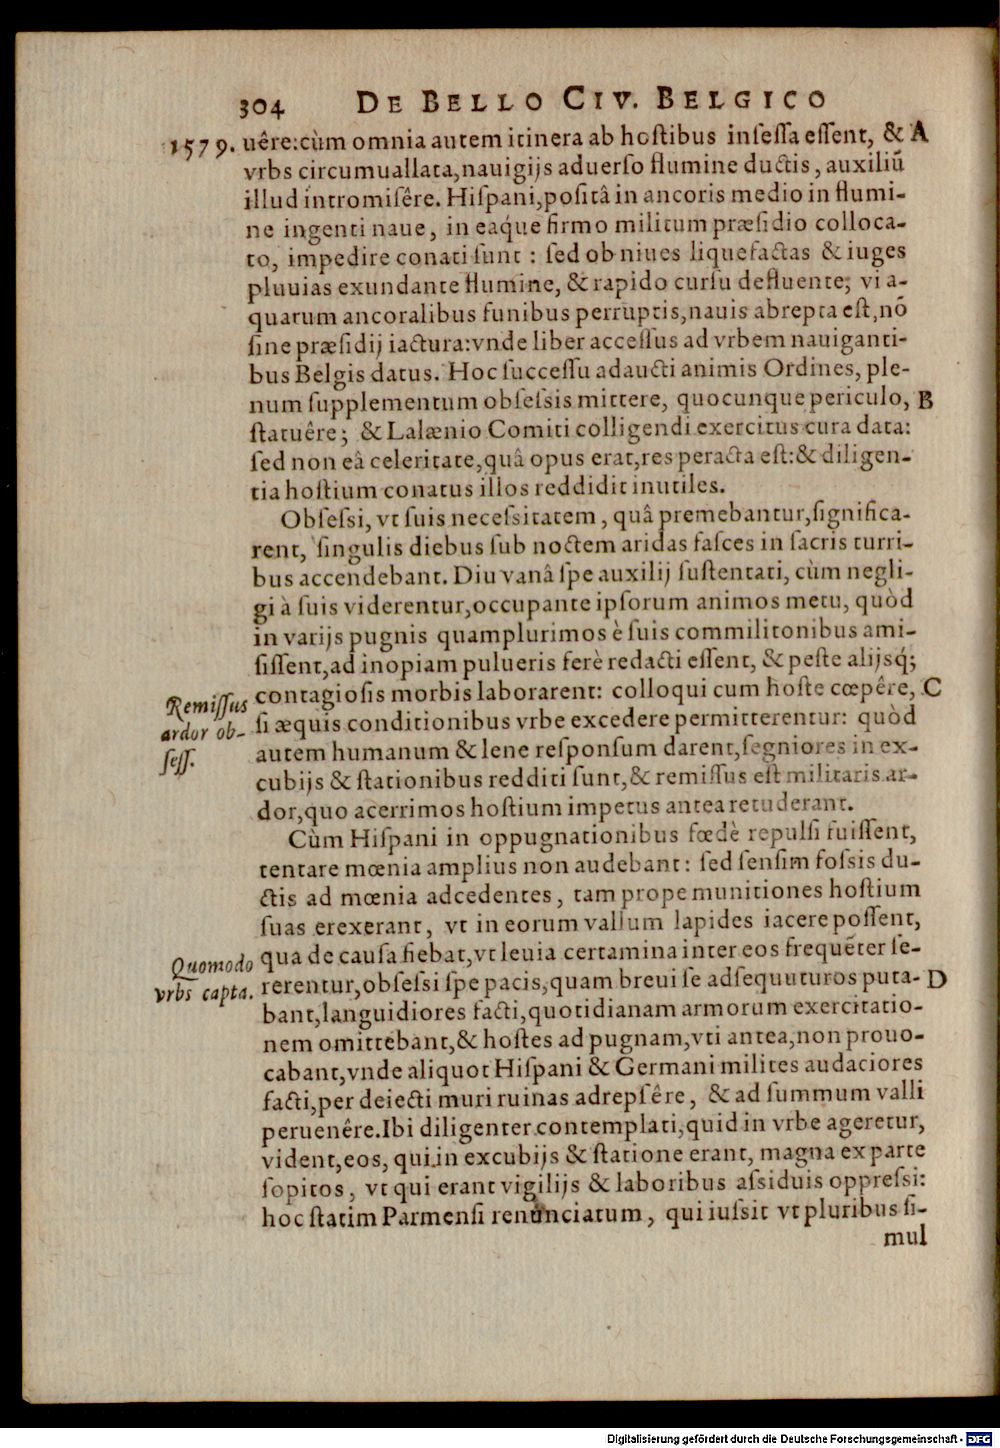 304 DE BELLO CIV. BELGICO
1579. uêre: cùm omnia autem itinera ab hoſtibus inſeſſa eſſent, & A
vrbs circumuallata, nauigijs aduerſo flumine ductis, auxiliū
illud intromiſêre. Hiſpani, poſitâ in ancoris medio in flumi-
ne ingenti naue, in eaq́ue firmo militum præſidio colloca-
to, impedire conati ſunt: ſed ob niues liquefactas & iuges
pluuias exundante flumine, & rapido curſu defluente; vi a-
quarum ancoralibus funibus perruptis, nauis abrepta eſt, nō
ſine præſidij iactura: vnde liber acceſſus ad vrbem nauiganti-
bus Belgis datus. Hoc ſucceſſu adaucti animis Ordines, ple-
num ſupplementum obſeſsis mittere, quocunque periculo, B
ſtatuêre; & Lalænio Comiti colligendi exercitus cura data:
ſed non eâ celeritate, quâ opus erat, res peracta eſt: & diligen-
tia hoſtium conatus illos reddidit inutiles.
Obſeſsi, vt ſuis neceſsitatem, quâ premebantur, ſignifica-
rent, ſingulis diebus ſub noctem aridas faſces in ſacris turri-
bus accendebant. Diu vanâ ſpe auxilij ſuſtentati, cùm negli-
gi à ſuis viderentur, occupante ipſorum animos metu, quòd
in varijs pugnis quamplurimos è ſuis commilitonibus ami-
ſiſſent, ad inopiam pulueris ferè redacti eſſent, & peſte alijsq́;
contagioſis morbis laborarent: colloqui cum hoſte cœpêre, C
Remiſſus
ardor ob-
ſeſſ.
ſi æquis conditionibus vrbe excedere permitterentur: quòd
autem humanum & lene reſponſum darent, ſegniores in ex-
cubijs & ſtationibus redditi ſunt, & remiſſus eſt militaris ar-
dor, quo acerrimos hoſtium impetus antea retuderant.
Cùm Hiſpani in oppugnationibus fœdè repulſi fuiſſent,
tentare mœnia amplius non audebant: ſed ſenſim foſsis du-
ctis ad mœnia adcedentes, tam prope munitiones hoſtium
ſuas erexerant, vt in eorum vallum lapides iacere poſſent,
qua de cauſa fiebat, vt leuia certamina inter eos frequēter ſe-
Quomodo
vrbs capta.
rerentur, obſeſsi ſpe pacis, quam breui ſe adſequuturos puta- D
bant, languidiores facti, quotidianam armorum exercitatio-
nem omittebant, & hoſtes ad pugnam, vti antea, non prouo-
cabant, vnde aliquot Hiſpani & Germani milites audaciores
facti, per deiecti muri ruinas adrepſêre, & ad ſummum valli
peruenêre. Ibi diligenter contemplati, quid in vrbe ageretur,
vident, eos, qui in excubijs & ſtatione erant, magna ex parte
ſopitos, vt qui erant vigilijs & laboribus aſsiduis oppreſsi:
hoc ſtatim Parmenſi renunciatum, qui iuſsit vt pluribus ſi-
mul
Digitalisierung gefördert durch die Deutsche Forschungsgemeinschaft - DFG